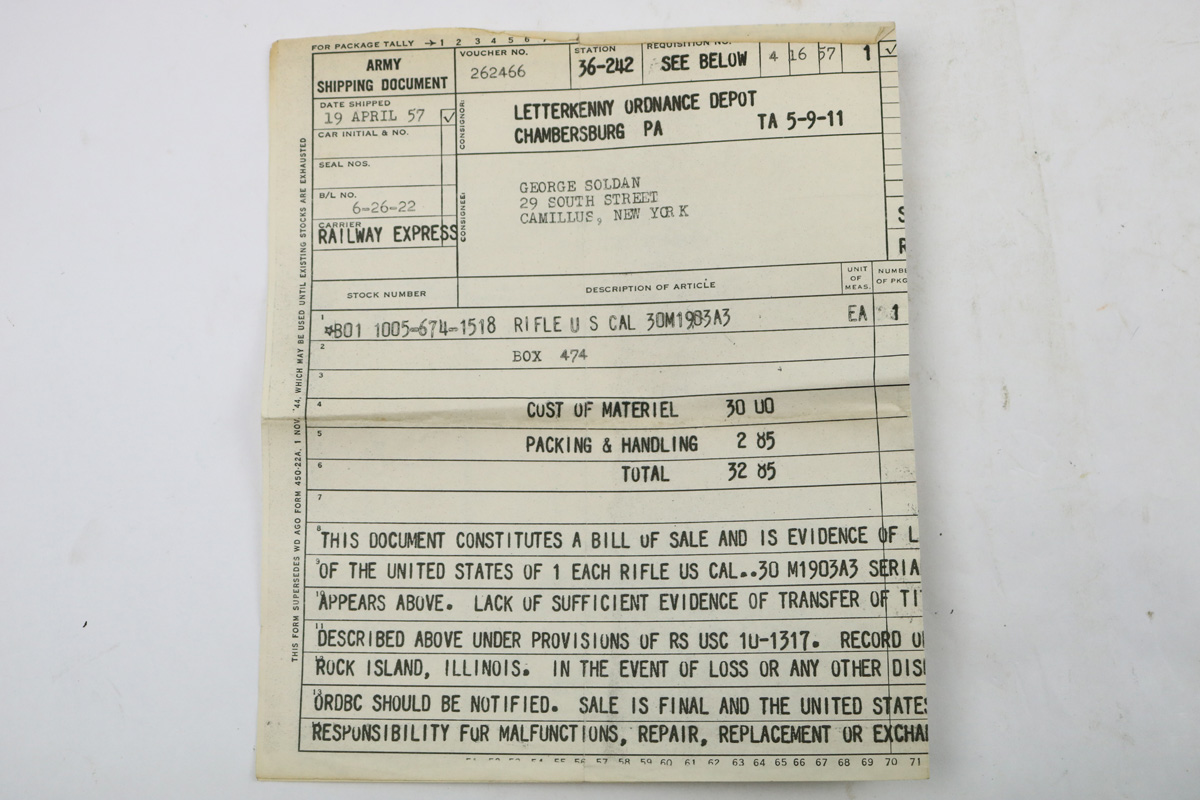 FOR PACKAGE TALLY → 1 2 3 4 5 6 7
ARMY
SHIPPING DOCUMENT
VOUCHER NO.
262466
STATION
36-242
REQUISITION NO.
SEE BELOW
4 16 57
1
DATE SHIPPED
19 APRIL 57
CAR INITIAL & NO.
SEAL NOS.
B/L NO.
6-26-22
CARRIER
RAILWAY EXPRESS
CONSIGNOR:
LETTERKENNY ORDNANCE DEPOT
CHAMBERSBURG PA TA 5-9-11
CONSIGNEE:
GEORGE SOLDAN
29 SOUTH STREET
CAMILLUS, NEW YORK
S
R
STOCK NUMBER
DESCRIPTION OF ARTICLE
UNIT
OF
MEAS.
NUMB
OF PKG
1 *B01 1005-674-1518 RIFLE U S CAL 30M1903A3 EA 1
2 BOX 474
3
4 COST OF MATERIEL 30 00
5 PACKING & HANDLING 2 85
6 TOTAL 32 85
7
8 THIS DOCUMENT CONSTITUTES A BILL OF SALE AND IS EVIDENCE OF L
9 OF THE UNITED STATES OF 1 EACH RIFLE US CAL..30 M1903A3 SERIA
10 APPEARS ABOVE. LACK OF SUFFICIENT EVIDENCE OF TRANSFER OF TI
11 DESCRIBED ABOVE UNDER PROVISIONS OF RS USC 10-1317. RECORD O
12 ROCK ISLAND, ILLINOIS. IN THE EVENT OF LOSS OR ANY OTHER DIS
13 ORDBC SHOULD BE NOTIFIED. SALE IS FINAL AND THE UNITED STATES
RESPONSIBILITY FOR MALFUNCTIONS, REPAIR, REPLACEMENT OR EXCHA
57 58 59 60 61 62 63 64 65 66 67 68 69 70 71
THIS FORM SUPERSEDES WD AGO FORM 450-22A, 1 NOV. '44, WHICH MAY BE USED UNTIL EXISTING STOCKS ARE EXHAUSTED